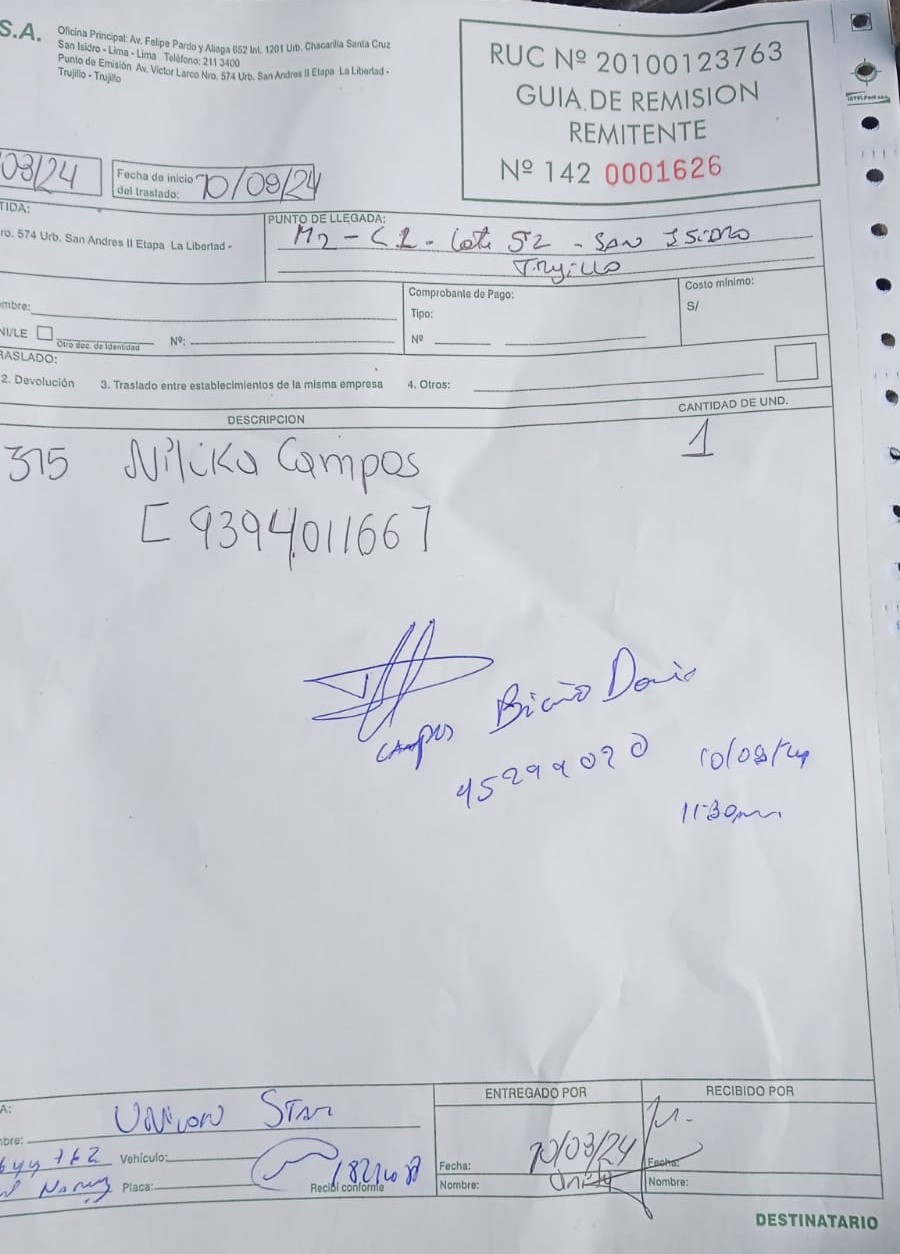 S.A.
Oficina Principal: Av. Felipe Pardo y Aliaga 652 Int. 1201 Urb. Chacarilla Santa Cruz
San Isidro - Lima - Lima Teléfono: 211 3400
Punto de Emisión Av. Victor Larco Nro. 574 Urb. San Andres II Etapa La Libertad -
Trujillo - Trujillo
RUC Nº 20100123763
GUIA DE REMISION
REMITENTE
Nº 142 0001626
/24
Fecha de inicio
del traslado: 10/09/24
TIDA:
ro. 574 Urb. San Andres II Etapa La Libertad -
PUNTO DE LLEGADA:
Mz - C1 - Lote 52 - SAN ISIDRO
Trujillo
mbre:
NI/LE
Otro doc. de Identidad
Nº:
Comprobante de Pago:
Tipo:
Nº
Costo mínimo:
S/
RASLADO:
2. Devolución 3. Traslado entre establecimientos de la misma empresa 4. Otros:
DESCRIPCION
CANTIDAD DE UND.
375 Campos 1
[ 9394011667
Campos
45299020
11:30
A:
UNION STAR
mbre:
Vehículo:
Placa:
Recibí conforme
ENTREGADO POR
Fecha:
Nombre:
RECIBIDO POR
Fecha:
Nombre:
DESTINATARIO